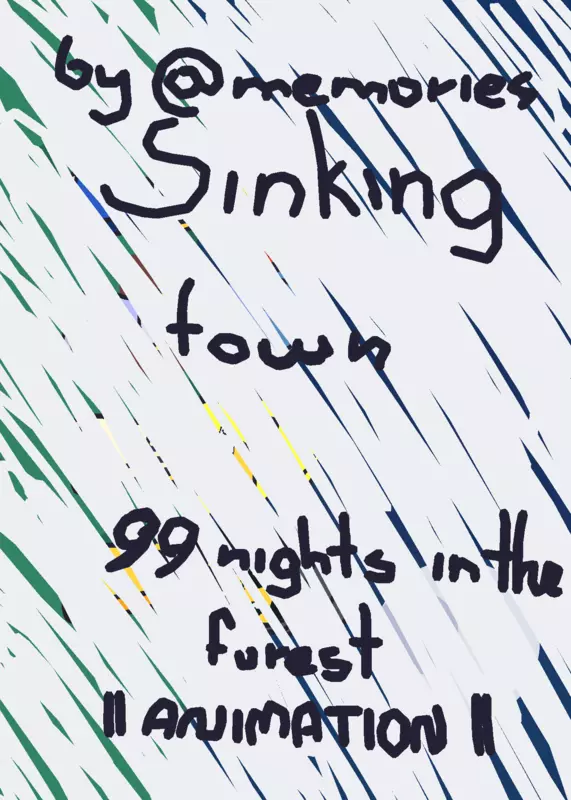 by @memories
Sinking
town
99 nights in the
forest
|| ANIMATION ||